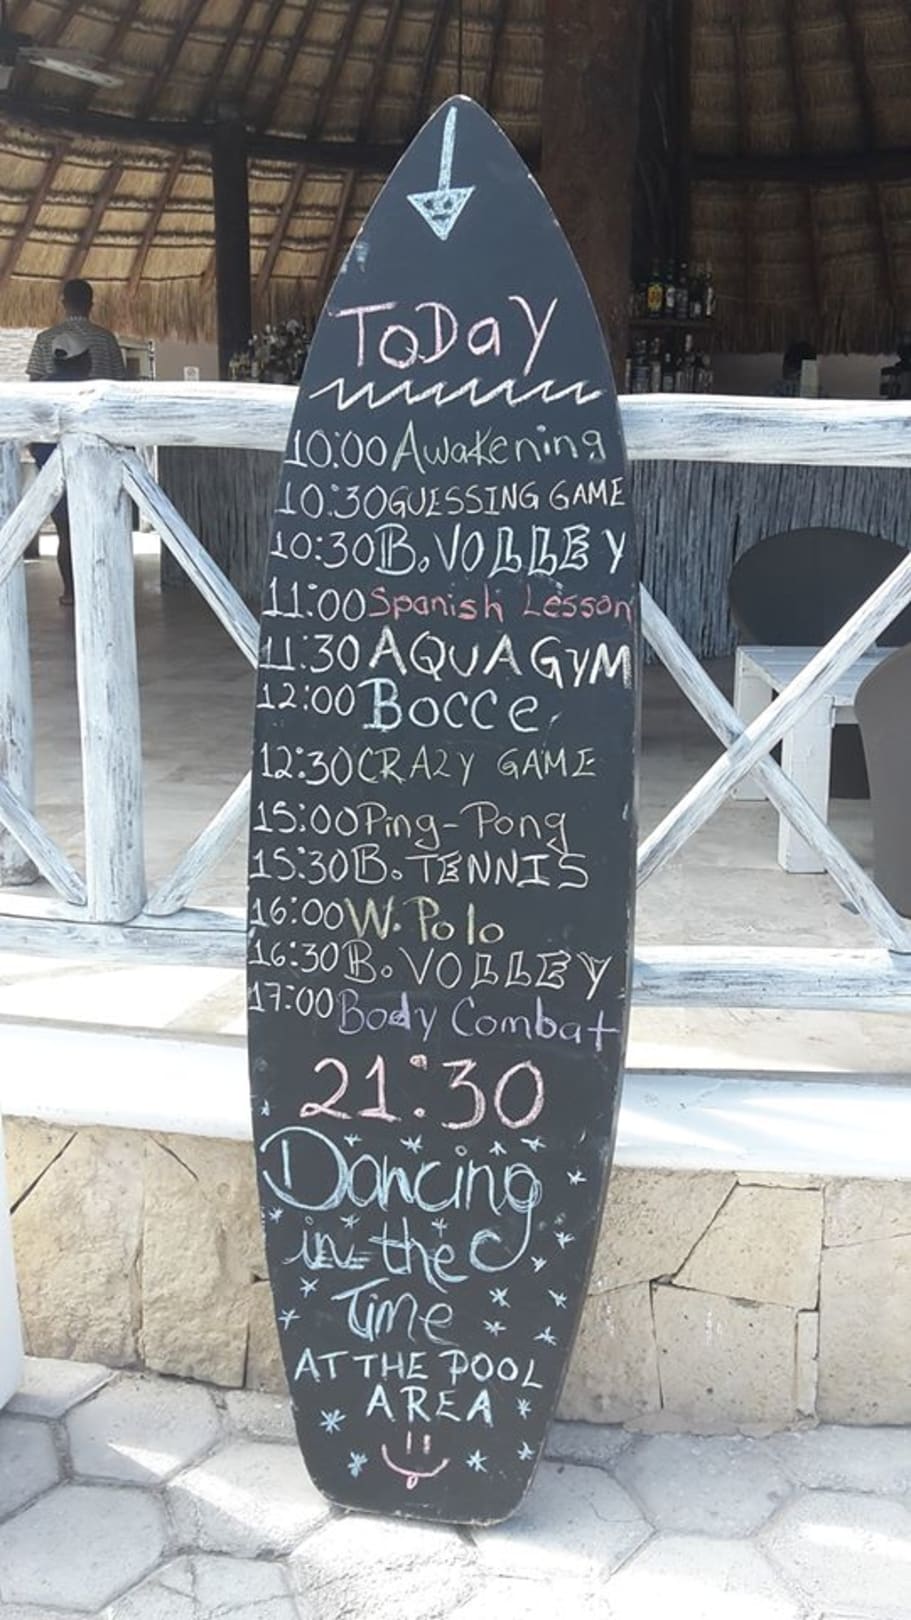 ToDay
10:00 Awakening
10:30 GUESSING GAME
10:30 B. VOLLEY
11:00 Spanish Lesson
11:30 AQUAGYM
12:00 Bocce
12:30 CRAZY GAME
15:00 Ping-Pong
15:30 B. TENNIS
16:00 W. Polo
16:30 B. VOLLEY
17:00 Body Combat
21:30
Dancing
in the
Time
AT THE POOL
AREA